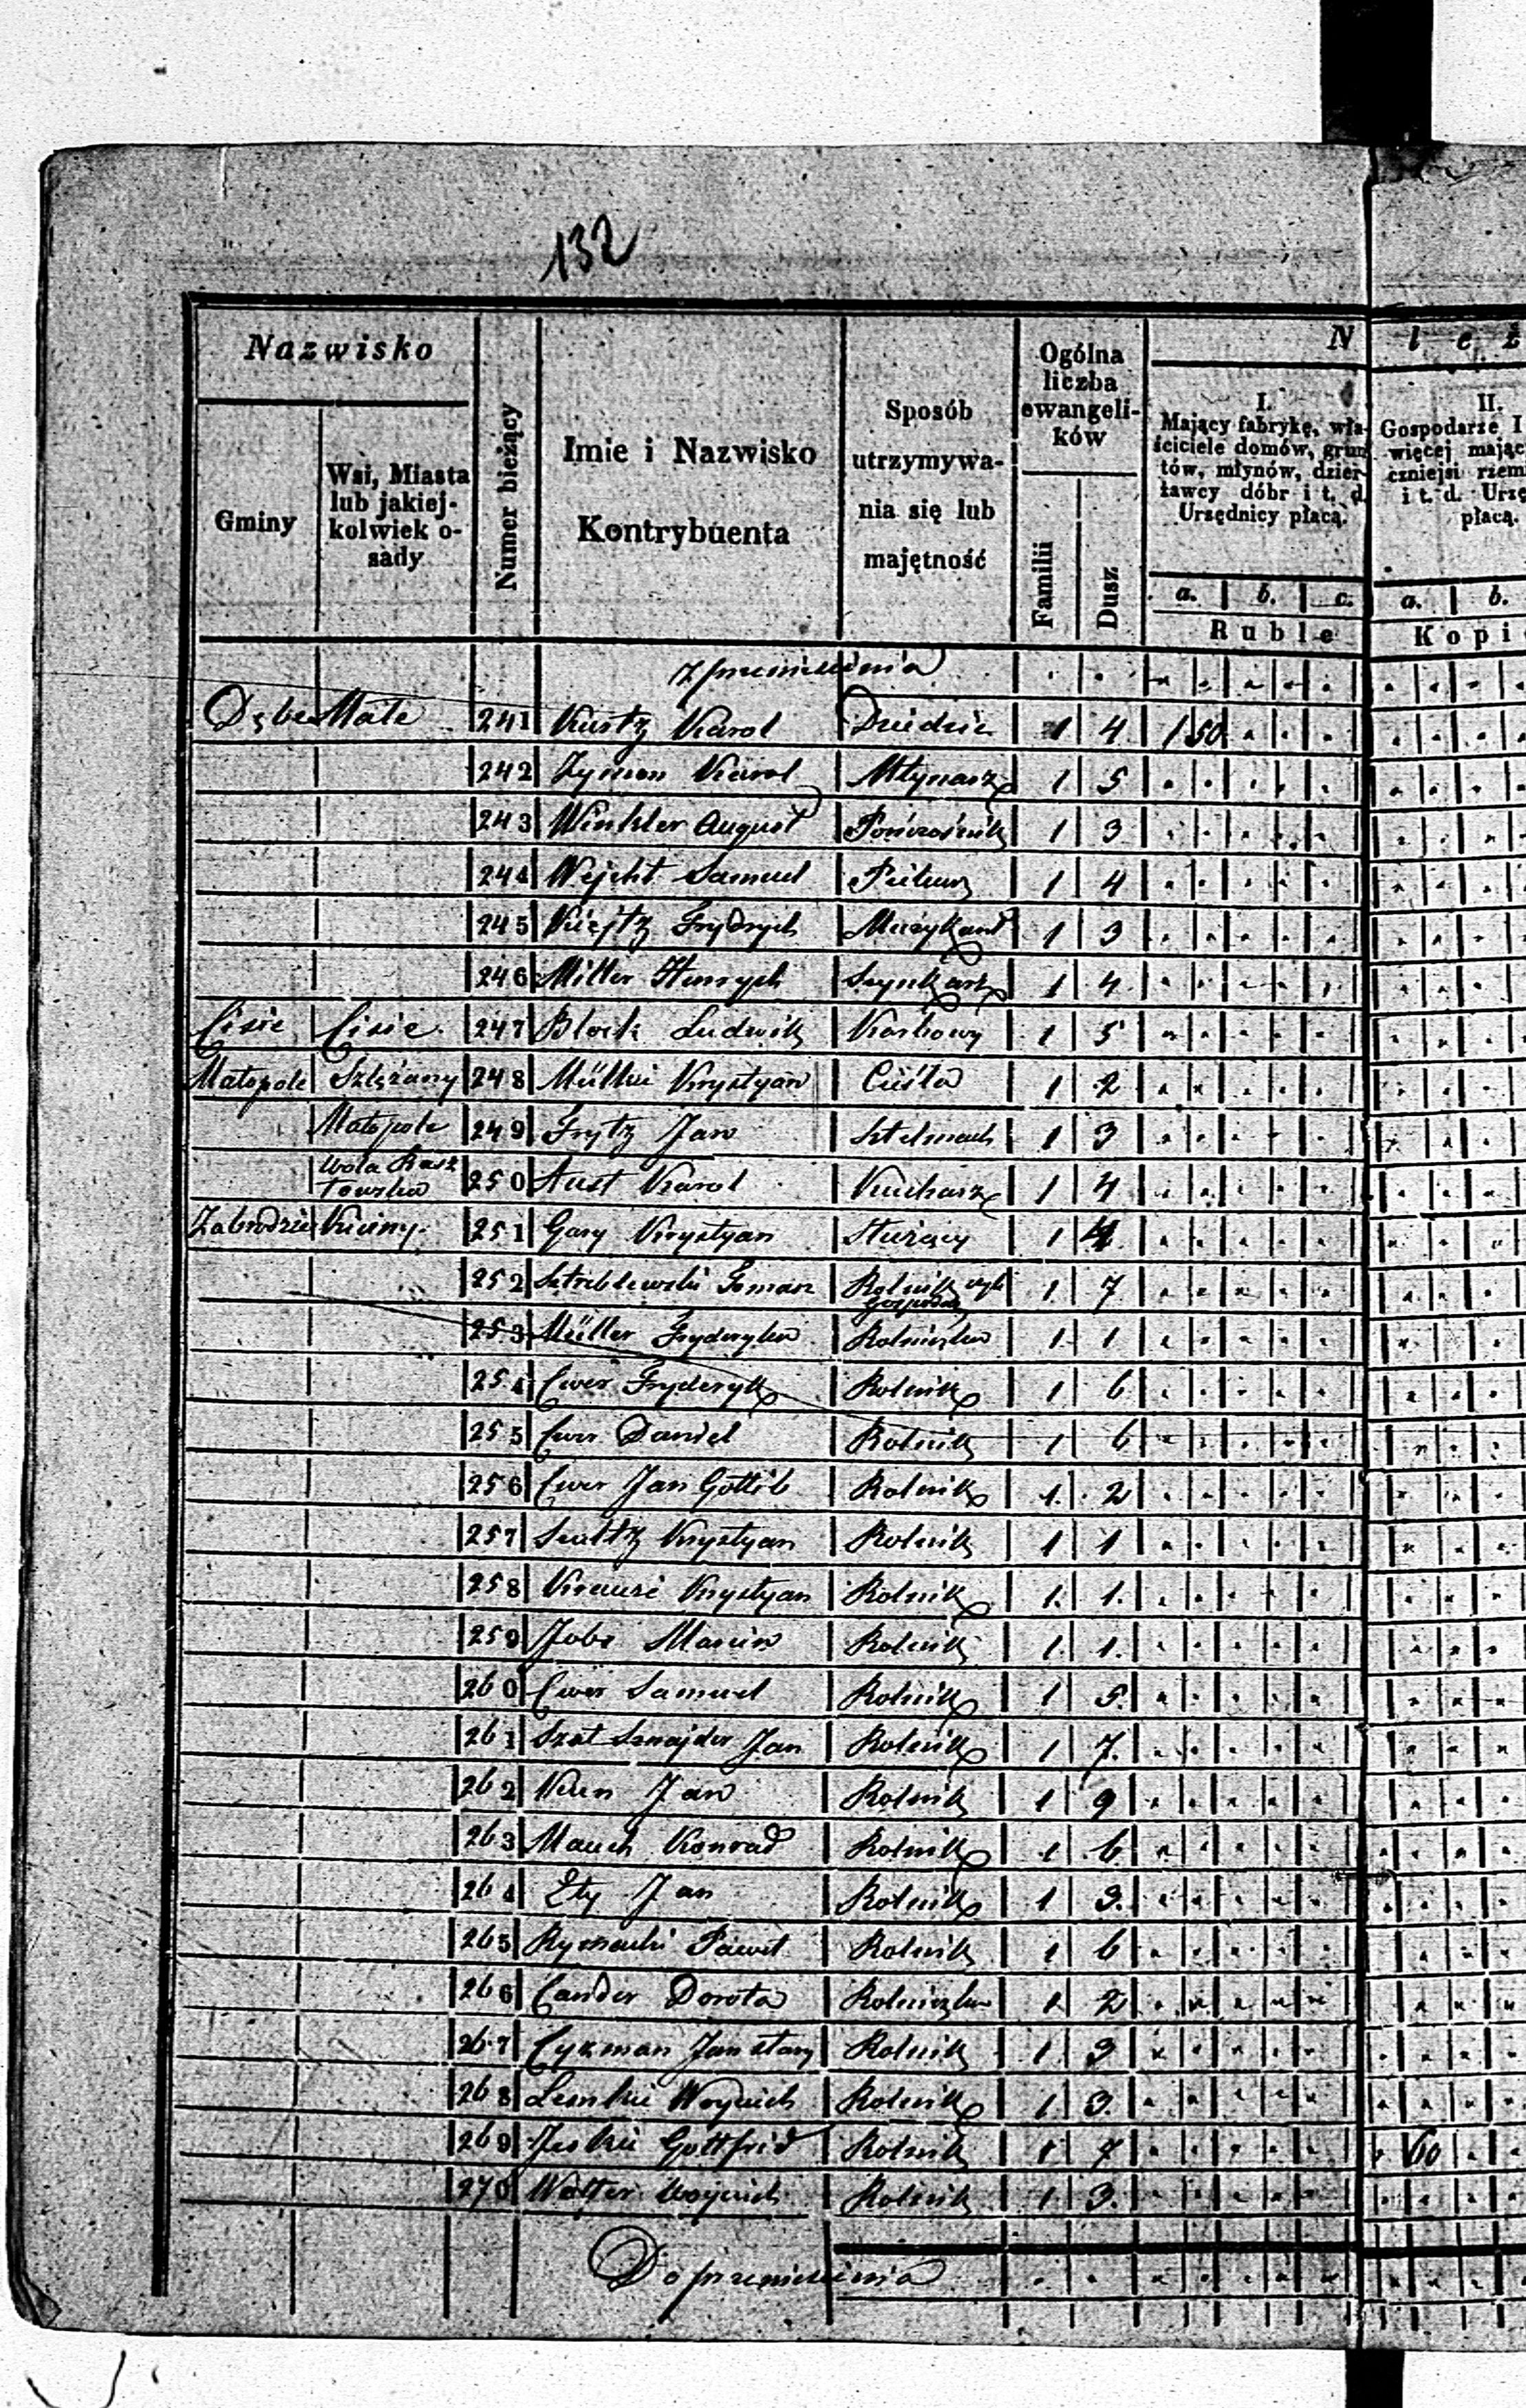 132
Nazwisko
Gminy
Wsi, Miasta
lub jakiej-
kolwiek o-
sady
Numer bieżący
Imie i Nazwisko
Kontrybuenta
Sposób
utrzymywa-
nia się lub
majętność
Ogólna
liczba
ewangeli-
ków
Familii
Dusz
N l e ż
I.
Mający fabrykę, wła-
ściciele domów, grun
tów, młynów, dzier-
ławcy dóbr i t. d.
Urzędnicy płacą.
a. b. c.
Ruble
II.
Gospodarze I
więcej mając
czniejsi rzem
i t. d. Urzę
płacą.
a. b.
Kopi
Z przeniesienia
Dębe Małe 241 Kurtz Karol Dziedzic 1 4 1 50
242 Zyman Karol Młynarz 1 5
243 Winkler August Pończośnik 1 3
244 Wejcht Samuel 1 4
245 Kiejtz Frydrych Muzykant 1 3
246 Miller Henrych Szynkarz 1 4
Cisie Cisie 247 Block Ludwik Karbowy 1 5
Małopole Szlężany 248 Müllke Krystyan Cieśla 1 2
Małopole 249 Frytz Jan Sztelmach 1 3
Wola Rasz
towska 250 Aust Karol Kucharz 1 4
Zabrodzie Kiciny 251 Gary Krystyan Służący 1 4
252 Sztreblewski Tomasz Rolnik czyli
Gospodarz 1 7
253 Müller Fryderyka Rolniczka 1 1
254 Cwer Fryderyk Rolnik 1 6
255 Cwer Daniel Rolnik 1 6
256 Cwer Jan Gottlib Rolnik 1 2
257 Szultz Krystyan Rolnik 1 1
258 Krauze Krystyan Rolnik 1 1
259 Jobs Marcin Rolnik 1 1
260 Cwer Samuel Rolnik 1 5
261 Szat Sznajder Jan Rolnik 1 7
262 Kun Jan Rolnik 1 9
263 Mauch Konrad Rolnik 1 6
264 Ety Jan Rolnik 1 3
265 Paweł Rolnik 1 6
266 Cander Dorota Rolniczka 1 2
267 Cykman Jan stary Rolnik 1 3
268 Lemke Woyciech Rolnik 1 3
269 Jeske Gottfrid Rolnik 1 7 60
270 Walter Woyciech Rolnik 1 3
Do przeniesienia